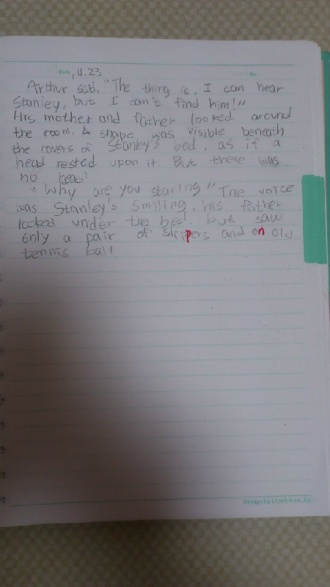 4.23
Arthur said, "The thing is, I can hear
Stanley, but I can't find him!"
His mother and father looked around
the room. A shape was visible beneath
the covers of Stanley's bed, as if a
head rested upon it. But there was
no head.
"Why are you staring" The voice
was Stanley's Smiling, his father
looked under the bed, but saw
only a pair of slippers and an old
tennis ball